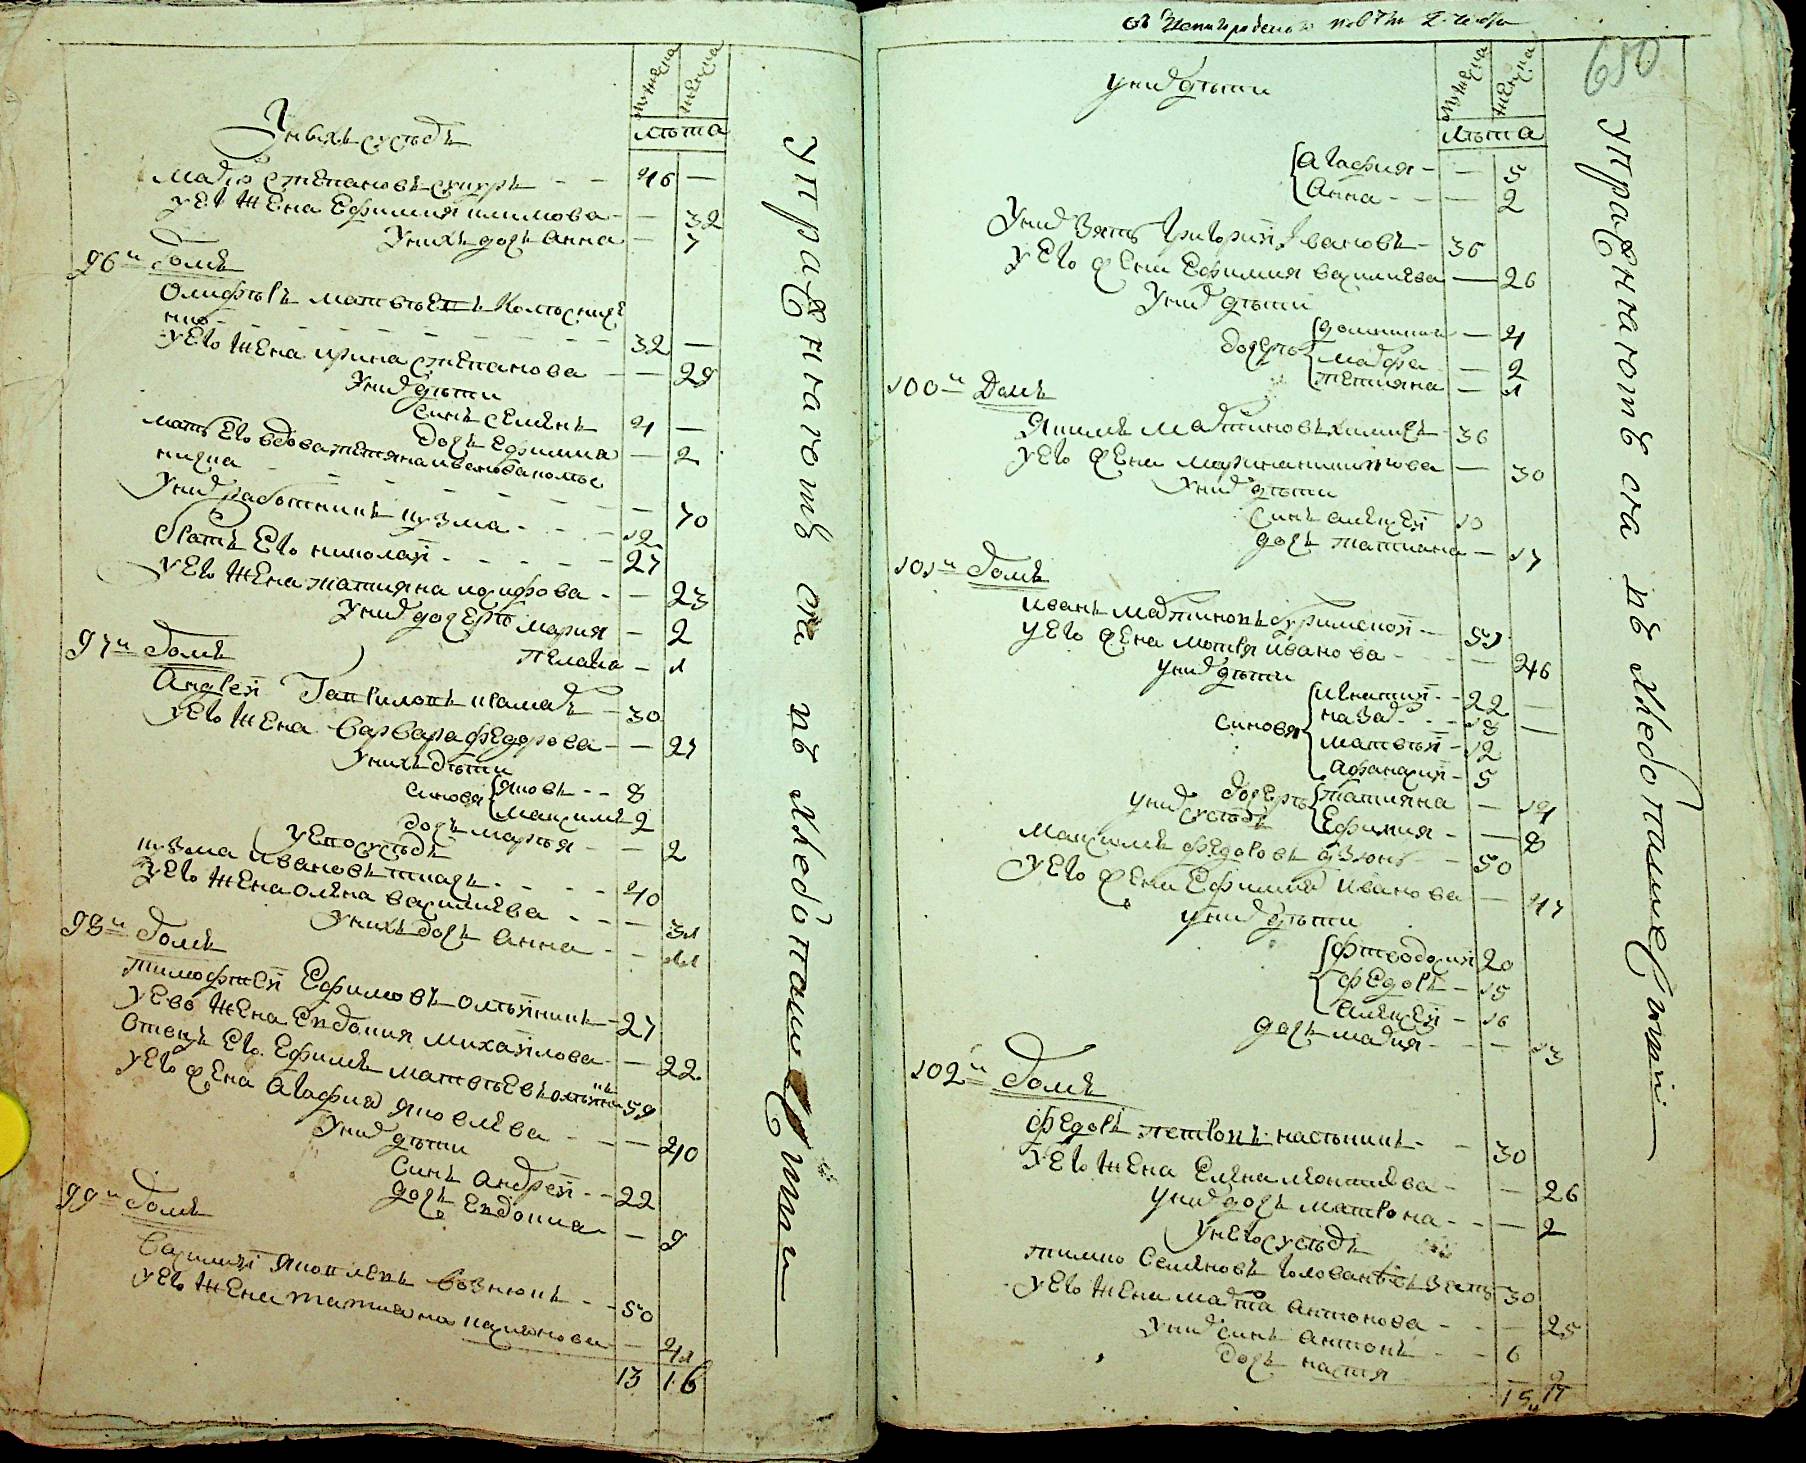 мужеска
женска
лѣта
У нихъ сусѣдъ
Марко Степановъ 46 —
У его жена Ефимия климова — 32
У нихъ дочь Анна — 7
96й Домъ
Олифѣръ Матвѣевъ Колѣсничен
нко
32 —
У его жена ирина степанова — 29
У них дѣти
синъ семенъ 4 —
дочь Ефимиа — 2
мать его вдова тетяна иванова колѣс
нична — 70
У них работникъ кузма 12
братъ Его николай 27
У его жена татияна иосифова — 23
У них дочери мария — 2
пелагиа — 1
97й Домъ
Андрей Гавриловъ крамар 30
У его жена варвара федорова — 27
У нихъ дѣти
синовя яковъ 8
максимъ 2
дочь марѣя — 2
У его сусѣдъ
кузма Ивановъ ткачъ 40
У его жена олена василиева — 31
У нихъ дочь Анна — 11
98й Домъ
тимофей Ефимовъ олѣйникъ 27
У его жена Евдокия михайлова — 22
Отецъ Его Ефимъ матвѣевъ олѣйникъ 59
У его жена Агафия яковлева — 40
У них дѣти
Синъ Андрей 22
дочь Евдокиа — 9
99й Домъ
Василий Яковлевъ Вознюкъ 50
У его жена татиана касянова — 41
13 16
У П р а ж н я ю т ъ с я в ъ х л е б о п а ш е с т и и
650
мужеска
женска
лѣта
У них дѣти
Агафия — 5
Анна — 2
У них зять Григорий Ивановъ 36
У его жена Ефимия василиева — 26
У них дѣти
дочерѣ
домникия — 4
марфа — 2
тетияна — 1
100й Домъ
Якимъ Мартиновъ 36
У его жена марина никитова — 30
У них дѣти
синъ алексей 10
дочь татиана — 17
101й Домъ
иванъ мартиновъ 51
У его жена мотря иванова — 46
У них дѣти
синовя
игнатий 22 —
назар 18 —
матвѣй 12
афанасий 5
дочерѣ татияна — 14
Ефимия — 8
У них сусѣдъ
максимъ федоровъ 50
У его жена Ефимия иванова — 47
У них дѣти
фтеодосий 20
федоръ 15
алексей 16
дочь мария — 13
102й Домъ
федоръ петровъ 30
У его жена Елена леонтиева — 26
У них дочь матрона — 2
У него сусѣдъ
тимко Семеновъ 30
У его жена марта антонова — 25
У них синъ антонъ 6
дочь настя 9
15 17
У п р а ж н я ю т ъ с я в ъ х л е б о п а ш е с т и и